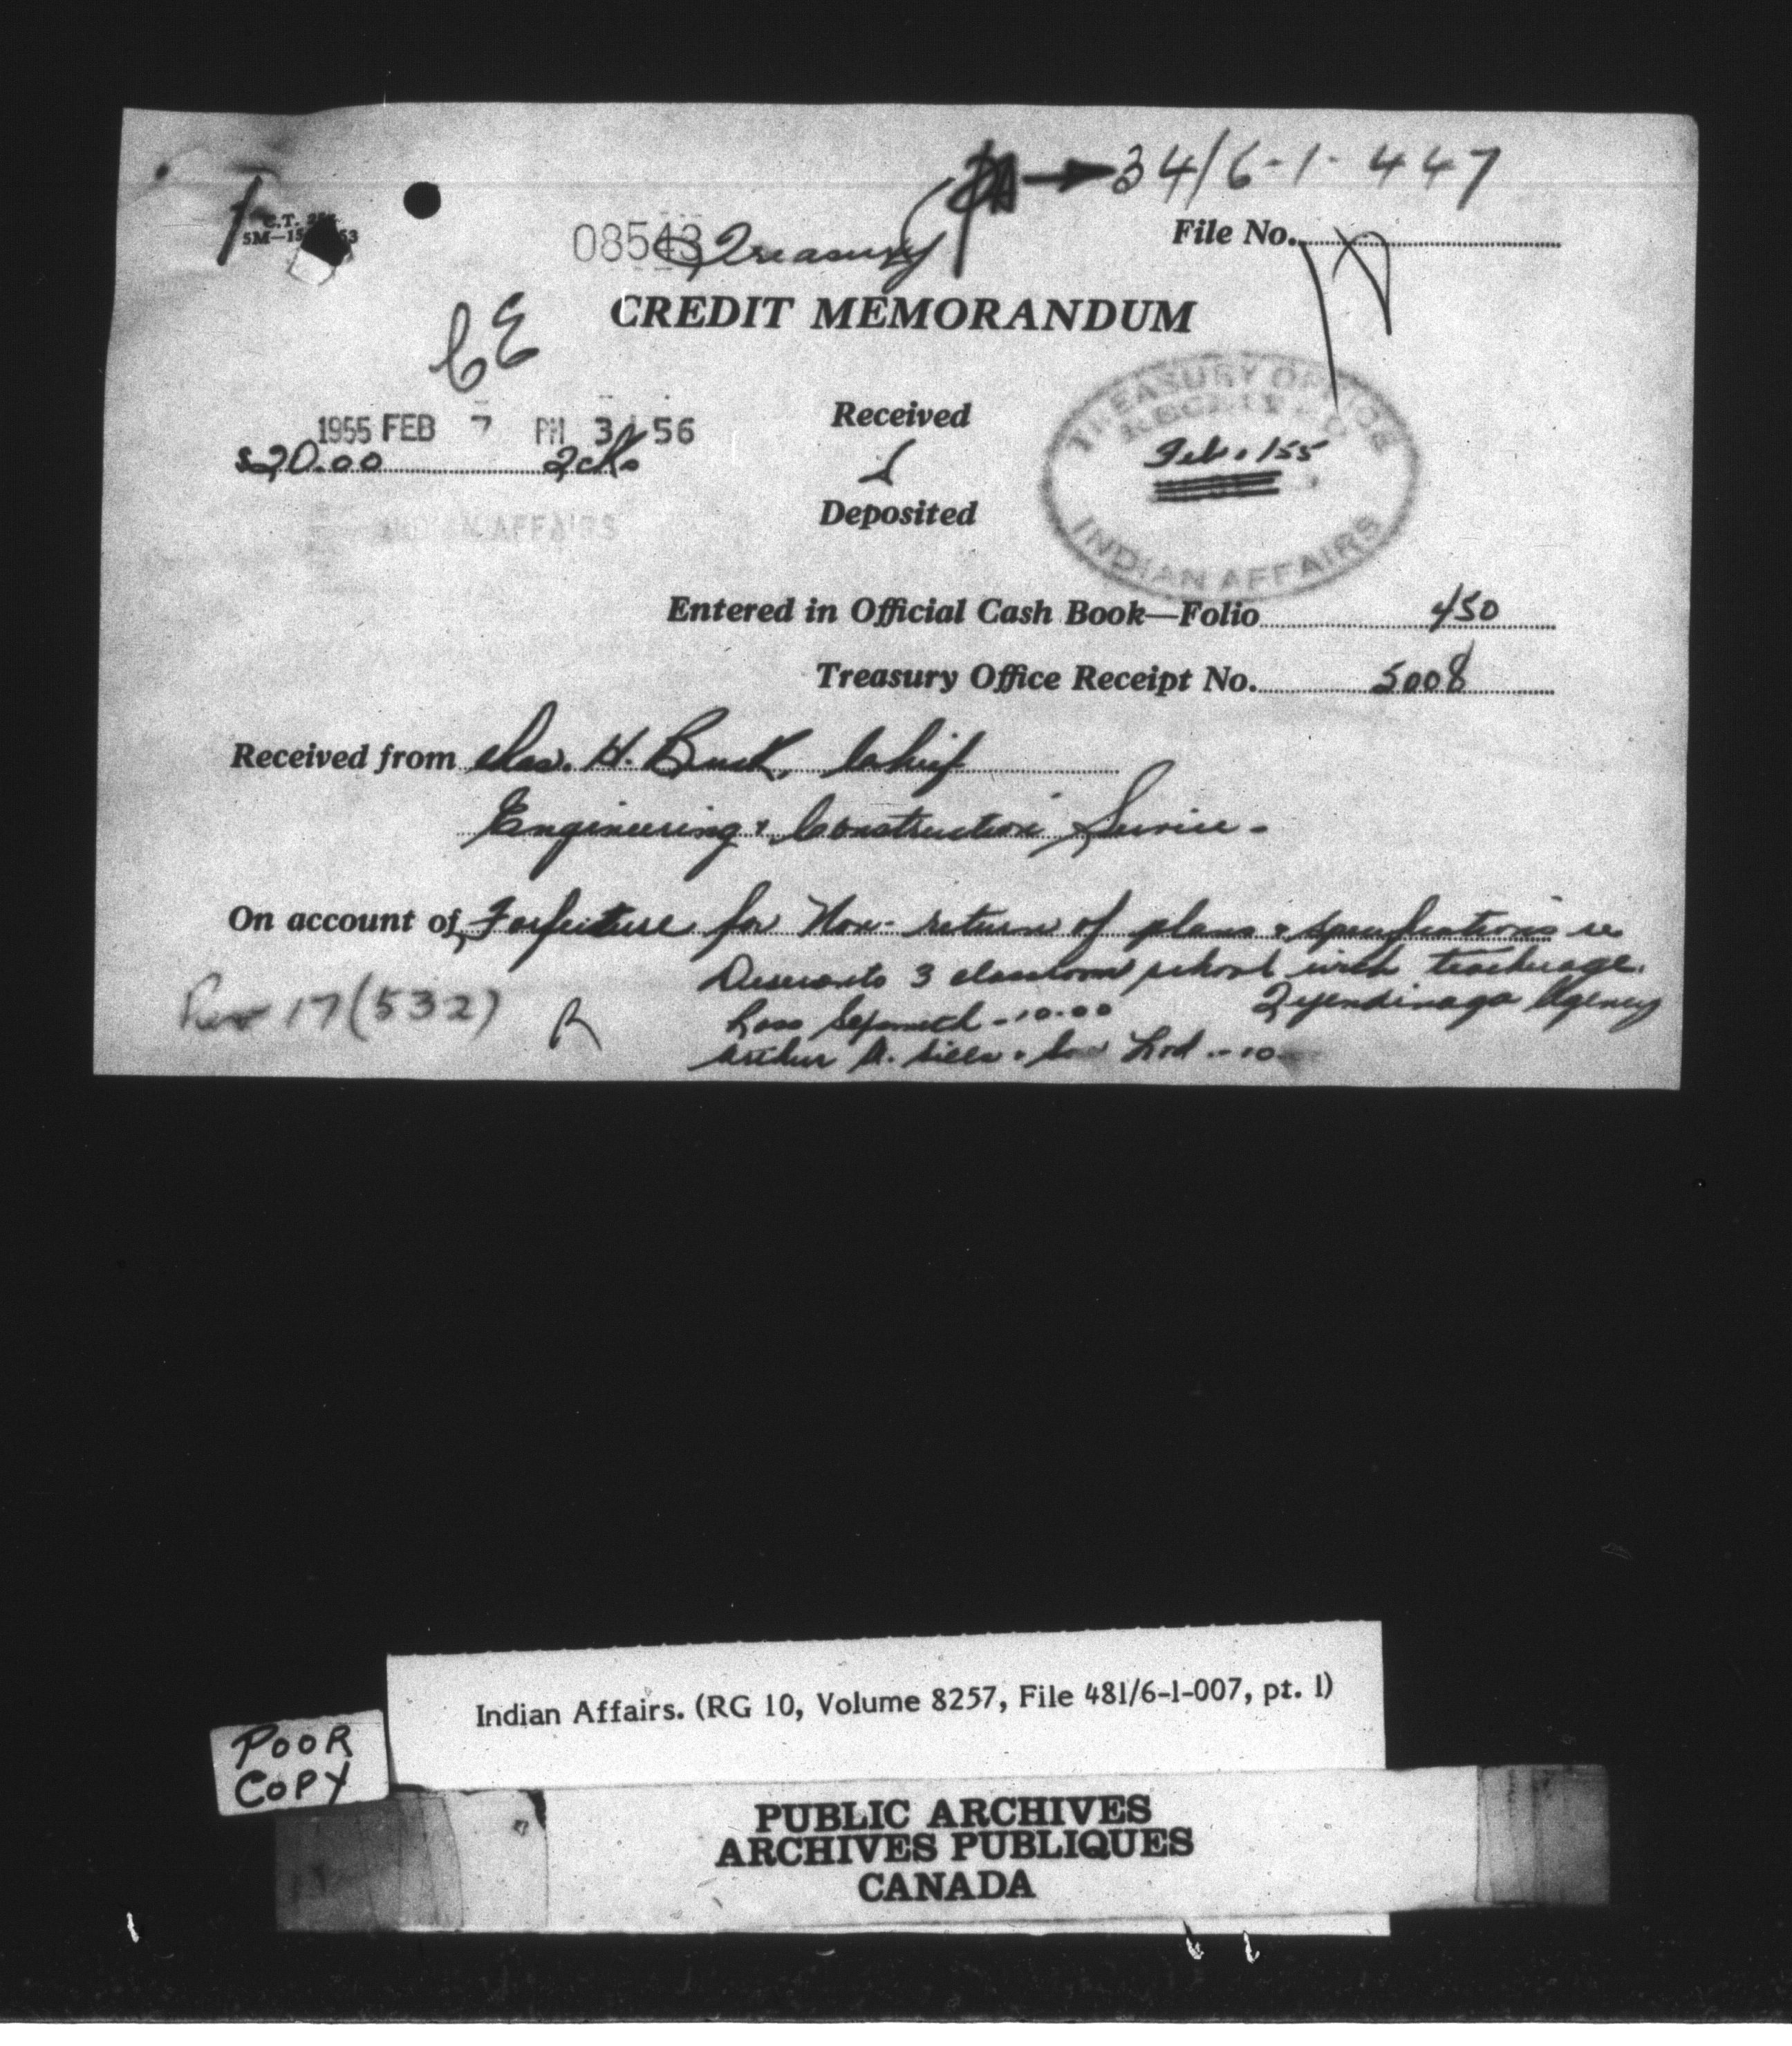 34/6-1-447
C.T.
5M—15
53
08543 Treasury
File No.
CREDIT MEMORANDUM
CE
1955 FEB 7 PM 3 56
$20.00 2 cks
Received
&
Deposited
TREASURY OFFICE
RECEIVED
Feb. 1/55
INDIAN AFFAIRS
INDIAN AFFAIRS
Entered in Official Cash Book—Folio 450
Treasury Office Receipt No. 5008
Received from Chas. H. Buck, Chief
Engineering & Construction Service -
On account of Forfeiture for Non-return of plans & specifications re
Deseronto 3 classroom school with teacherage.
Tyendinaga Agency
Rev 17(532)
R
10.00
Arthur A. Sills & Son -- 10
Indian Affairs. (RG 10, Volume 8257, File 481/6-1-007, pt. 1)
POOR
COPY
PUBLIC ARCHIVES
ARCHIVES PUBLIQUES
CANADA